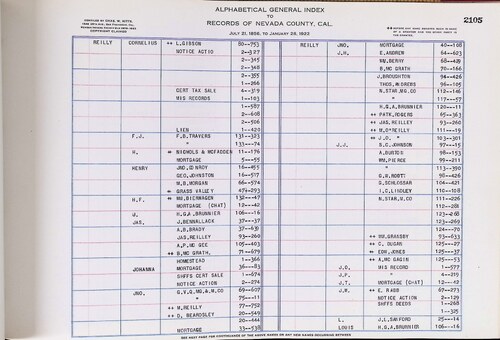 ALPHABETICAL GENERAL INDEX
TO
RECORDS OF NEVADA COUNTY, CAL.
JULY 21, 1856, TO JANUARY 28, 1922
COPYRIGHT CLAIMED
2105
REILLY CORNELIUS ↔ L. GIBSON 80—753
NOTICE ACTIO 2—327
2—345
2—348
2—355
1—266
CERT TAX SALE 4—319
MIS RECORDS 1—103
1—587
2—408
2—506
LIEN 1—420
F.J. F.B. TRAVERS 131—323
" 133—74
H. NICHOLS & MCFADDEN 11—176
MORTGAGE 5—55
HENRY JNO. CONROY 16—455
GEO. JOHNSTON 16—517
M.B. MORGAN 66—574
GRASS VALLEY 474—293
H.F. WM. BIERWAGEN 132—47
MORTGAGE (CHAT) 12—42
J. H.G.A. BRUNNIER 106—16
JAS. J. BENNALLACK 37—37
A.B. BRADY 37—639
JAS. REILLEY 93—260
A.P. MC GEE 105—403
B. MC GRATH. 71—679
HOMESTEAD 1—366
JOHANNA MORTGAGE 36—83
SHFFS CERT SALE 1—674
NOTICE ACTION 2—274
JNO. G.V.Q. MG. & M. CO 69—607
" 75—11
H. REILLY 77—752
D. BEARDSLEY 20—549
20—444
MORTGAGE 33—538
REILLY JNO. MORTGAGE 40—108
J.H. E. ANDREW 64—623
WM. BERRY 68—409
B. MC GRATH 70—166
J. BROUGHTON 94—426
THOS. W. DREWS 98—105
N. STAR MG. CO 112—146
" 117—57
H.G.A. BRUNNIER 120—11
↔ PATK. ROGERS 65—363
↔ JAS. REILLEY 93—260
↔ B. O'REILLY 111—19
↔ J.D. " 103—301
J.J. S.C. JOHNSON 97—15
A. BURTON 98—153
WM. PIERCE 99—211
" 113—390
G.W. ROOTT 98—426
G. SCHLOSSAR 104—421
I.C. LINDLEY 110—108
N. STAR. M. CO 111—226
112—281
123—268
123—269
124—70
WM. GRANSBY 93—633
C. SUGAR 125—27
EDW. JONES 125—37
A. MC GAGIN 125—53
J.O. MIS RECORD 1—577
J.P. " 4—219
J.T. MORTGAGE (CHAT) 12—42
J.W. ↔ E. RABB 67—273
NOTICE ACTION 2—129
SHFFS DEEDS 1—268
1—325
L. J.L. SANFORD 25—14
LOUIS H.G.A. BRUNNIER 106—16